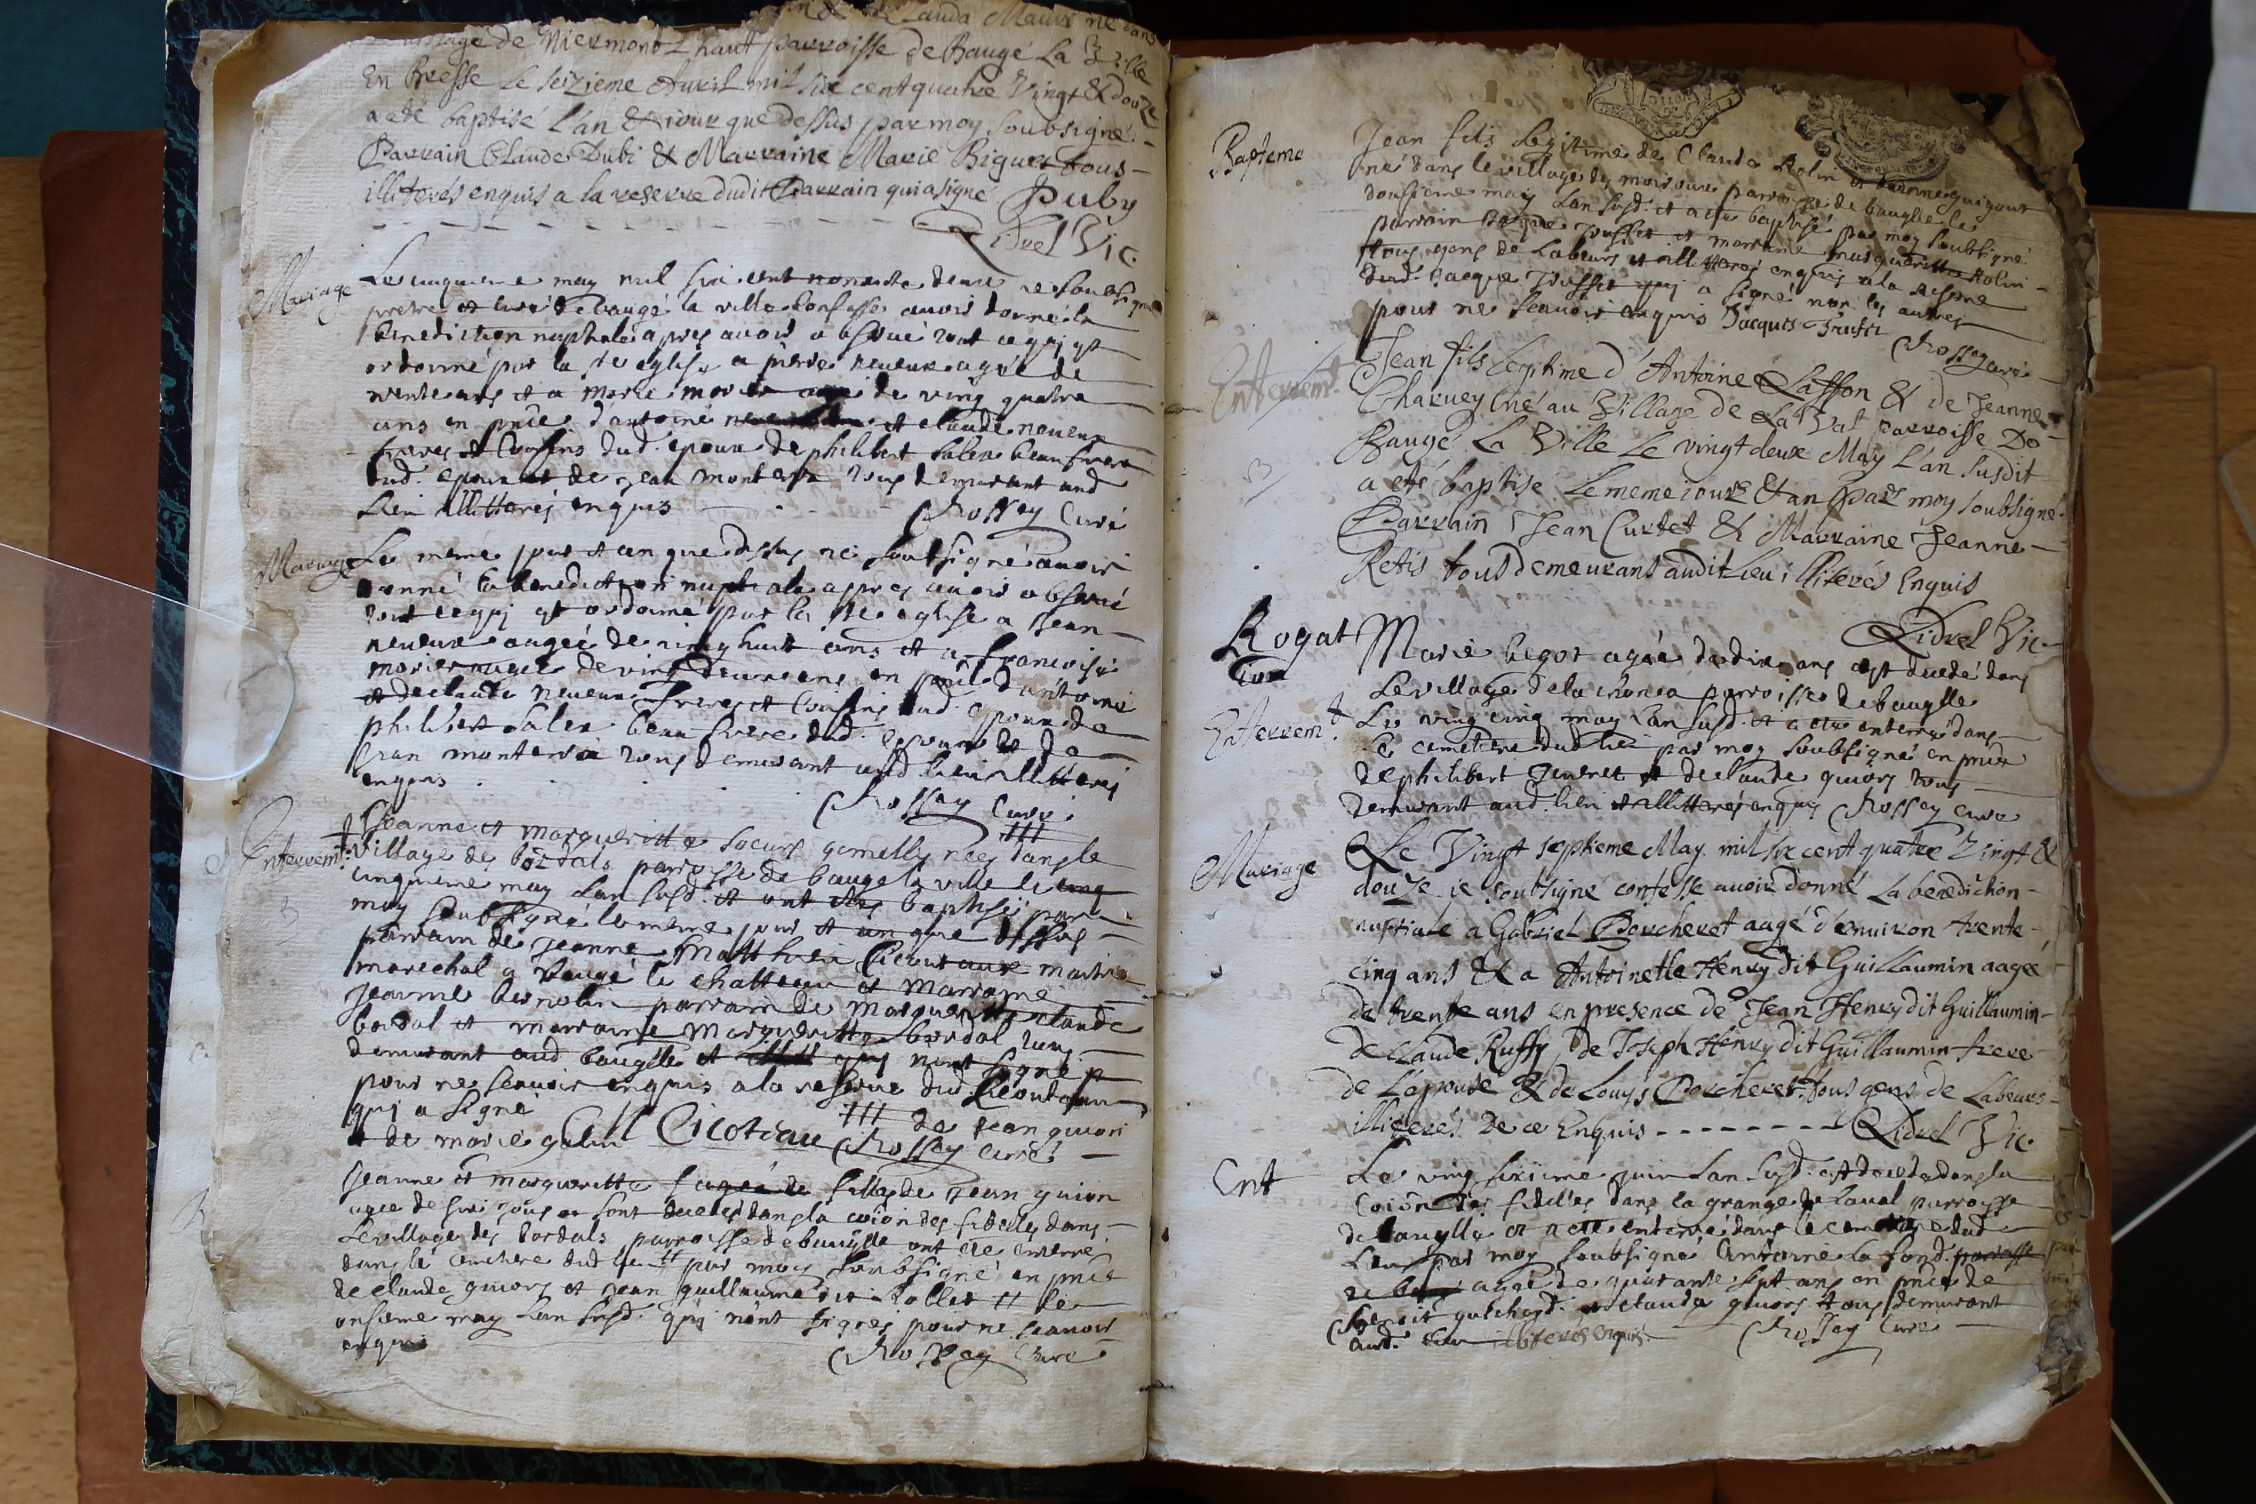 Lauda Maur ne dans
village de Niermont L'haut parroisse de Baugé La Ville
En Bresse Le seizieme Avril mil six cent quatre Vingt & douze
a été baptisé L'an & iour que dessus par moy soubsigné
Parrain Claude Dubi & Marraine Marie Biguet tous
illiterés enquis a la reserve dudit Parrain qui a signé Puby
Ridvel Vic.
Mariage
Le cinquieme may mil six cent nonente deux ie soubsigné
prêtre et curé de baugé la ville confesse avoir donné la
benediction nuptiale apres avoir observé tout ce qui est
ordonné par la ste eglise a pierre neveux agée de
trente ans et a marie morier agée de ving quatre
ans en pnce d'antoine et claude neveux
freres et Cousins dud. epoux de philibert salex beau frere
dud. epoux et de jean monterra tous demurant aud
Lieu illitterés enquis Rossay Curé
Mariage
Le meme jour et an que dessus ie soubsigné avoir
donné la benediction nuptiale apres avoir observé
tout ce qui est ordonné par la ste eglise a jean
neveux aagée de ving huit ans et a francoise
morier aagée de ving deux ans en pnce d'antoine
et de claude neveux freres et Cousins dud. epoux de
philibert salex beau frere dud. epoux et de
jean monterra tous demurant aud lieu illitterés
enquis
Rossay Curé
Enterremt:
Jeanne et margueritte soeurs gemelly nées dans le
village des bordals parroisse de baugé la ville le cinq
cinquieme may Lan susd. et ont etes baptisés par
moy soubsigné le meme jour et an que dessus
parrain de Jeanne Matthieu Cicoutaux maitre
marechal a Baugé le chatteau et marraine
Jeanne bernolin parrain de margueritte claude
bordal et marraine Margueritte bordal tous
demurant aud baugélle et quj n'ont signé
pour ne scavoir enquis a la reserve dud. Cicoutaux
quj a signé de jean guion
et de marie gelin M Cicoteau Rossay Curé
Jeanne et margueritte filles de jean guion
agée de six jours et sont decedes dans la coïon des fidelles dans
Le village des bordals parroisse de baugélle ont été enterré
dans le cemetiere dud lieu par moy soubsigné en pnce
de claude guiors et jean guillaume dit Rollet le
onsieme may Lan susd. quj n'ont signes pour ne scavoir
enquis
Rossay Curé
Bapteme
Jean fils Legitime de Claude Rolin et
né dans le village des moisoux parroisse de baugélle le
dousieme may Lan susd. et a eté baptisé par moy soubsigné
parrain Jacque Trusset et marraine margueritte Rolin
tous gens de Labeurs et illitterés enquis a la reserve
dud. Jacque Trusset quj a signé non les autres
pour ne scavoir enquis Jacques Truset
Rossay curé
Enterremt.
Jean fils Legitime d'Antoine Laffon & de Jeanne
Charvey né au Village de La Val parroisse De
Baugé La Ville Le vingt deux May L'an susdit
a été baptisé Le meme iour & an Par moy soubsigné
Parrain Jean Curtet & Marraine Jeanne
Retis tous demeurans audit Lieu illiterés Enquis
Ridvel Vic
Rogat
ion
Enterremt.
Marie begot agée de dix ans est decedé dans
Le village de la parroisse de baugélle
Le ving cinq may Lan susd. et a eté enterré dans
le cemetiere dud lieu par moy soubsigné en pnce
de philibert Jeuvret et de claude guiors tous
demurant aud. lieu et illitterés enquis Rossay curé
Mariage
Le Vingt septieme May mil six cent quatre Vingt &
douze ie soubsigné confesse avoir donné La benediction
nuptiale a Gabriel Porcheret aagé d'environ trente
cinq ans & a Antoinette Henry dit Guillaumin aagée
de trente ans en presence de Jean Henry dit Guillaumin
de claude Ruffy, de Joseph Henry dit Guillaumin frere
de L'epouse & de Louys Porcheret tous gens de Labeurs
illiterés De ce Enquis Ridvel Vic
Ent
Le ving sixieme juin Lan susd. est decedé dans la
Coïon des fidelles dans la grange de Laval parroisse
de baugélle et a eté enterré dans le cemetiere dud
Lieu par moy soubsigné Antoine la fond.
agé de quarante sept ans en pnce de
et claude guiors tous demurant
aud. Lieu illiterés enquis Rossay Curé